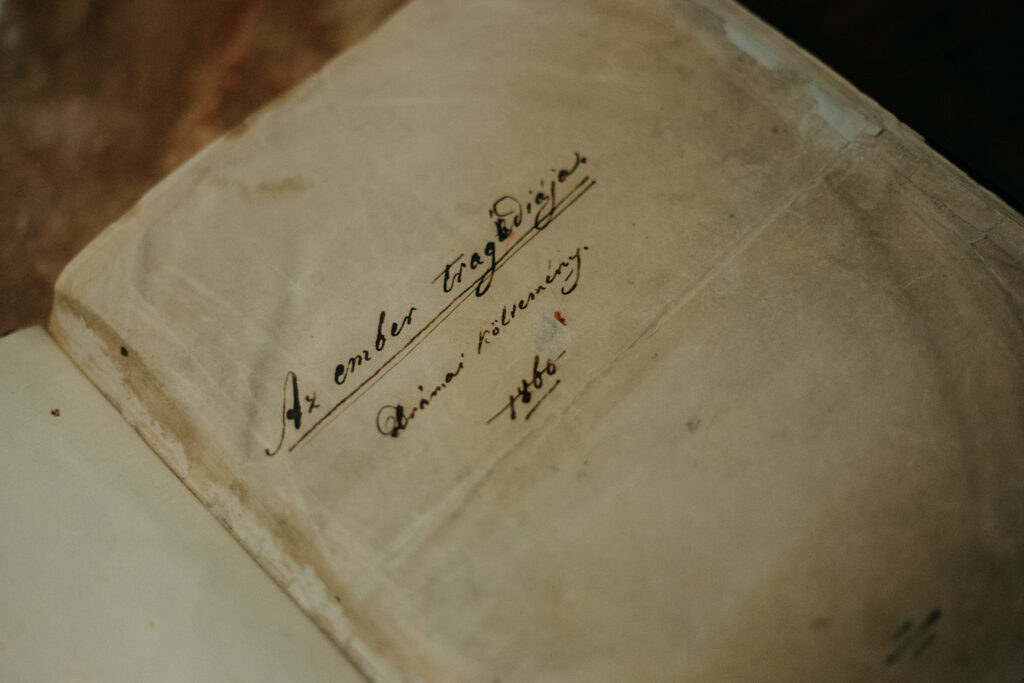 Az ember tragédiája.
Drámai költemény.
1860